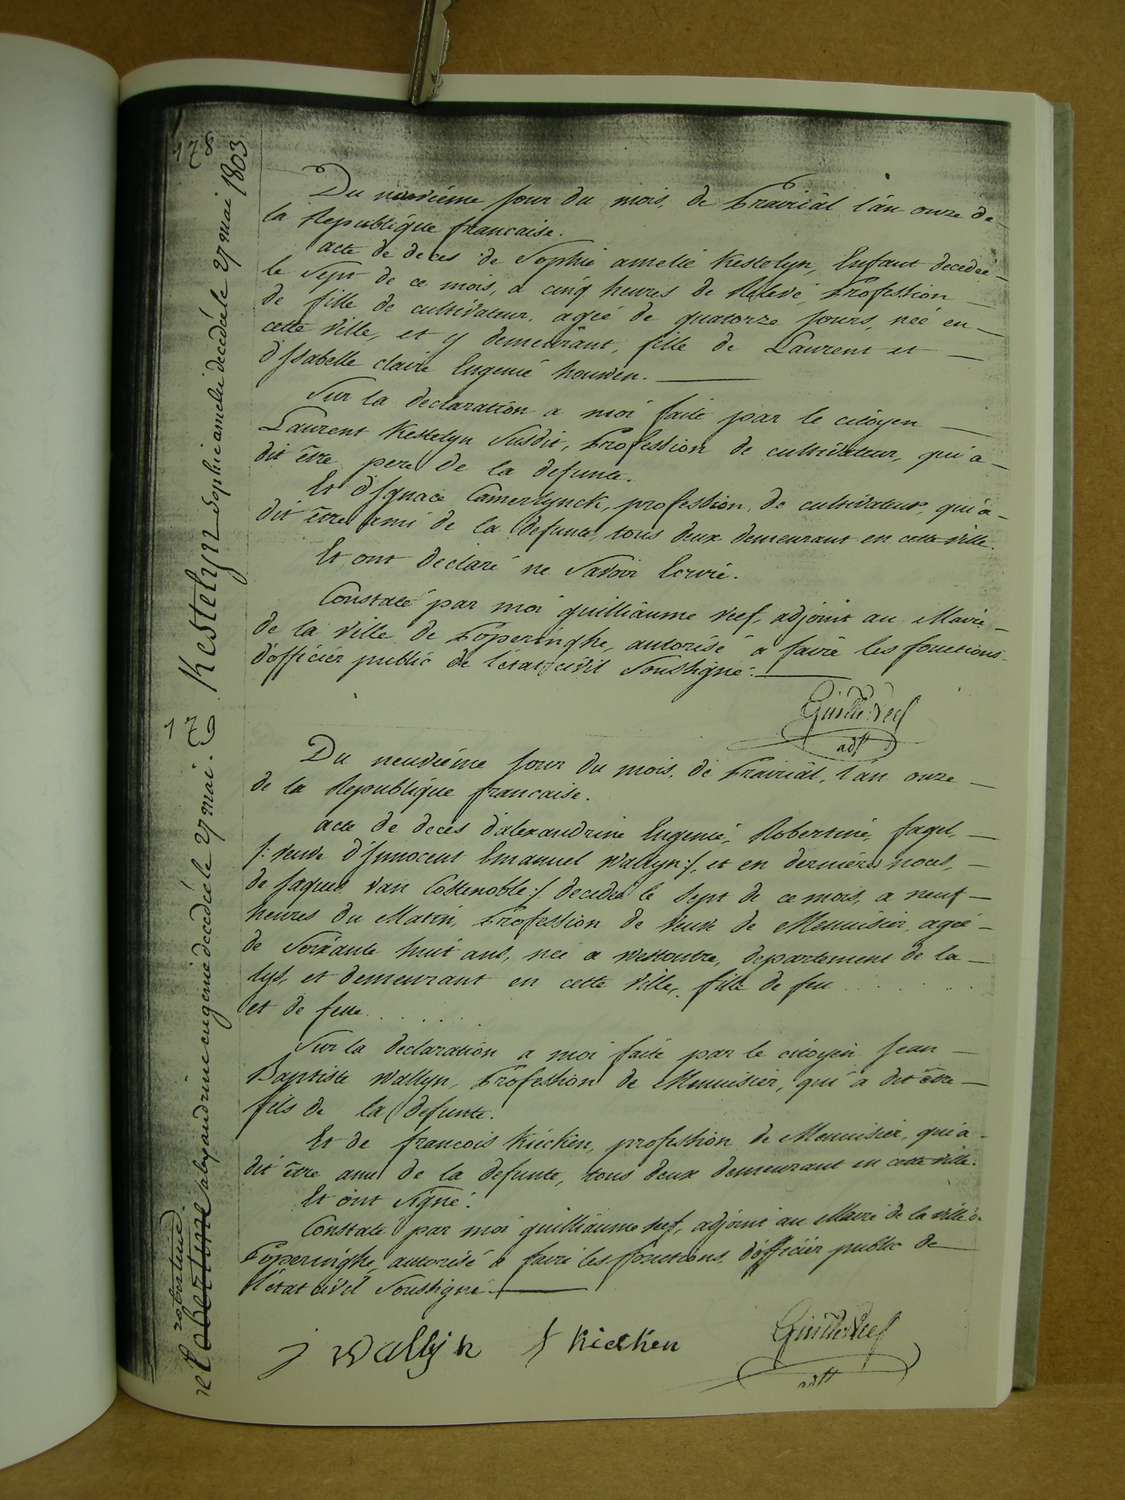 178
Kestelyn Sophie amelie decedé le 27 mai 1803
Du neuvième jour du mois de Prairiâl l'an onze de
la Republique francaise.
acte de deces de Sophie amelie Kestelyn, Enfant decedeé
le Sept de ce mois, a cinq heures de Relevé, Profession
de fille de cultivateur, ageé de quatorze jours, neé en
cette ville, et y demeurant, fille de Laurent et
d'Isabelle claire Eugenié houwen.
Sur la declaration a moi faite par le citoyen
Laurent Kestelyn Susdit, Profession de cultivateur, qui a
dit être pere de la defunte.
Et d'Ignace Camerlynck, profession de cultivateur, qui a
dit être ami de la defunte, tous deux demeurant en cette ville.
Et ont declaré ne Savoir Ecrire.
Constaté par moi guilliaume veef, adjoint au Maire
de la ville de Poperinghe, autorisé a faire les fonctions
d'officier public de l'état civil Soussigné.
Guille Veef
adjt
179
robertine
Robertine alexandrine eugenie decedé le 27 mai.
Du neuvième jour du mois de Prairiâl, l'an onze
de la Republique francaise.
acte de deces d'alexandrine Eugenié, Robertine, fagel,
/: veuve d'Innocent Emanuel Wallyn :/, et en derniere noces,
de Jaques Van Costenoble :/ decedeé le Sept de ce mois, a neuf
heures du Matin, Profession de veuve de Menuisier, ageé
de Soixante huit ans, neé a westoutre, departement de la
Lys, et demeurant en cette ville, fille de feu . . . . . . .
et de feue . . . . . .
Sur la declaration a moi faite par le citoyen Jean
Baptiste Wallyn, Profession de Menuisier, qui a dit être
fils de la defunte.
Et de francois Kiecken, profession de Menuisier, qui a
dit être ami de la defunte, tous deux demeurant en cette ville.
Et ont Signé.
Constaté par moi guilliaume veef, adjoint au Maire de la ville de
Poperinghe, autorisé a faire les fonctions d'officier public de
l'état civil Soussigné.
j Wallyn f Kiecken Guille Veef
adjt